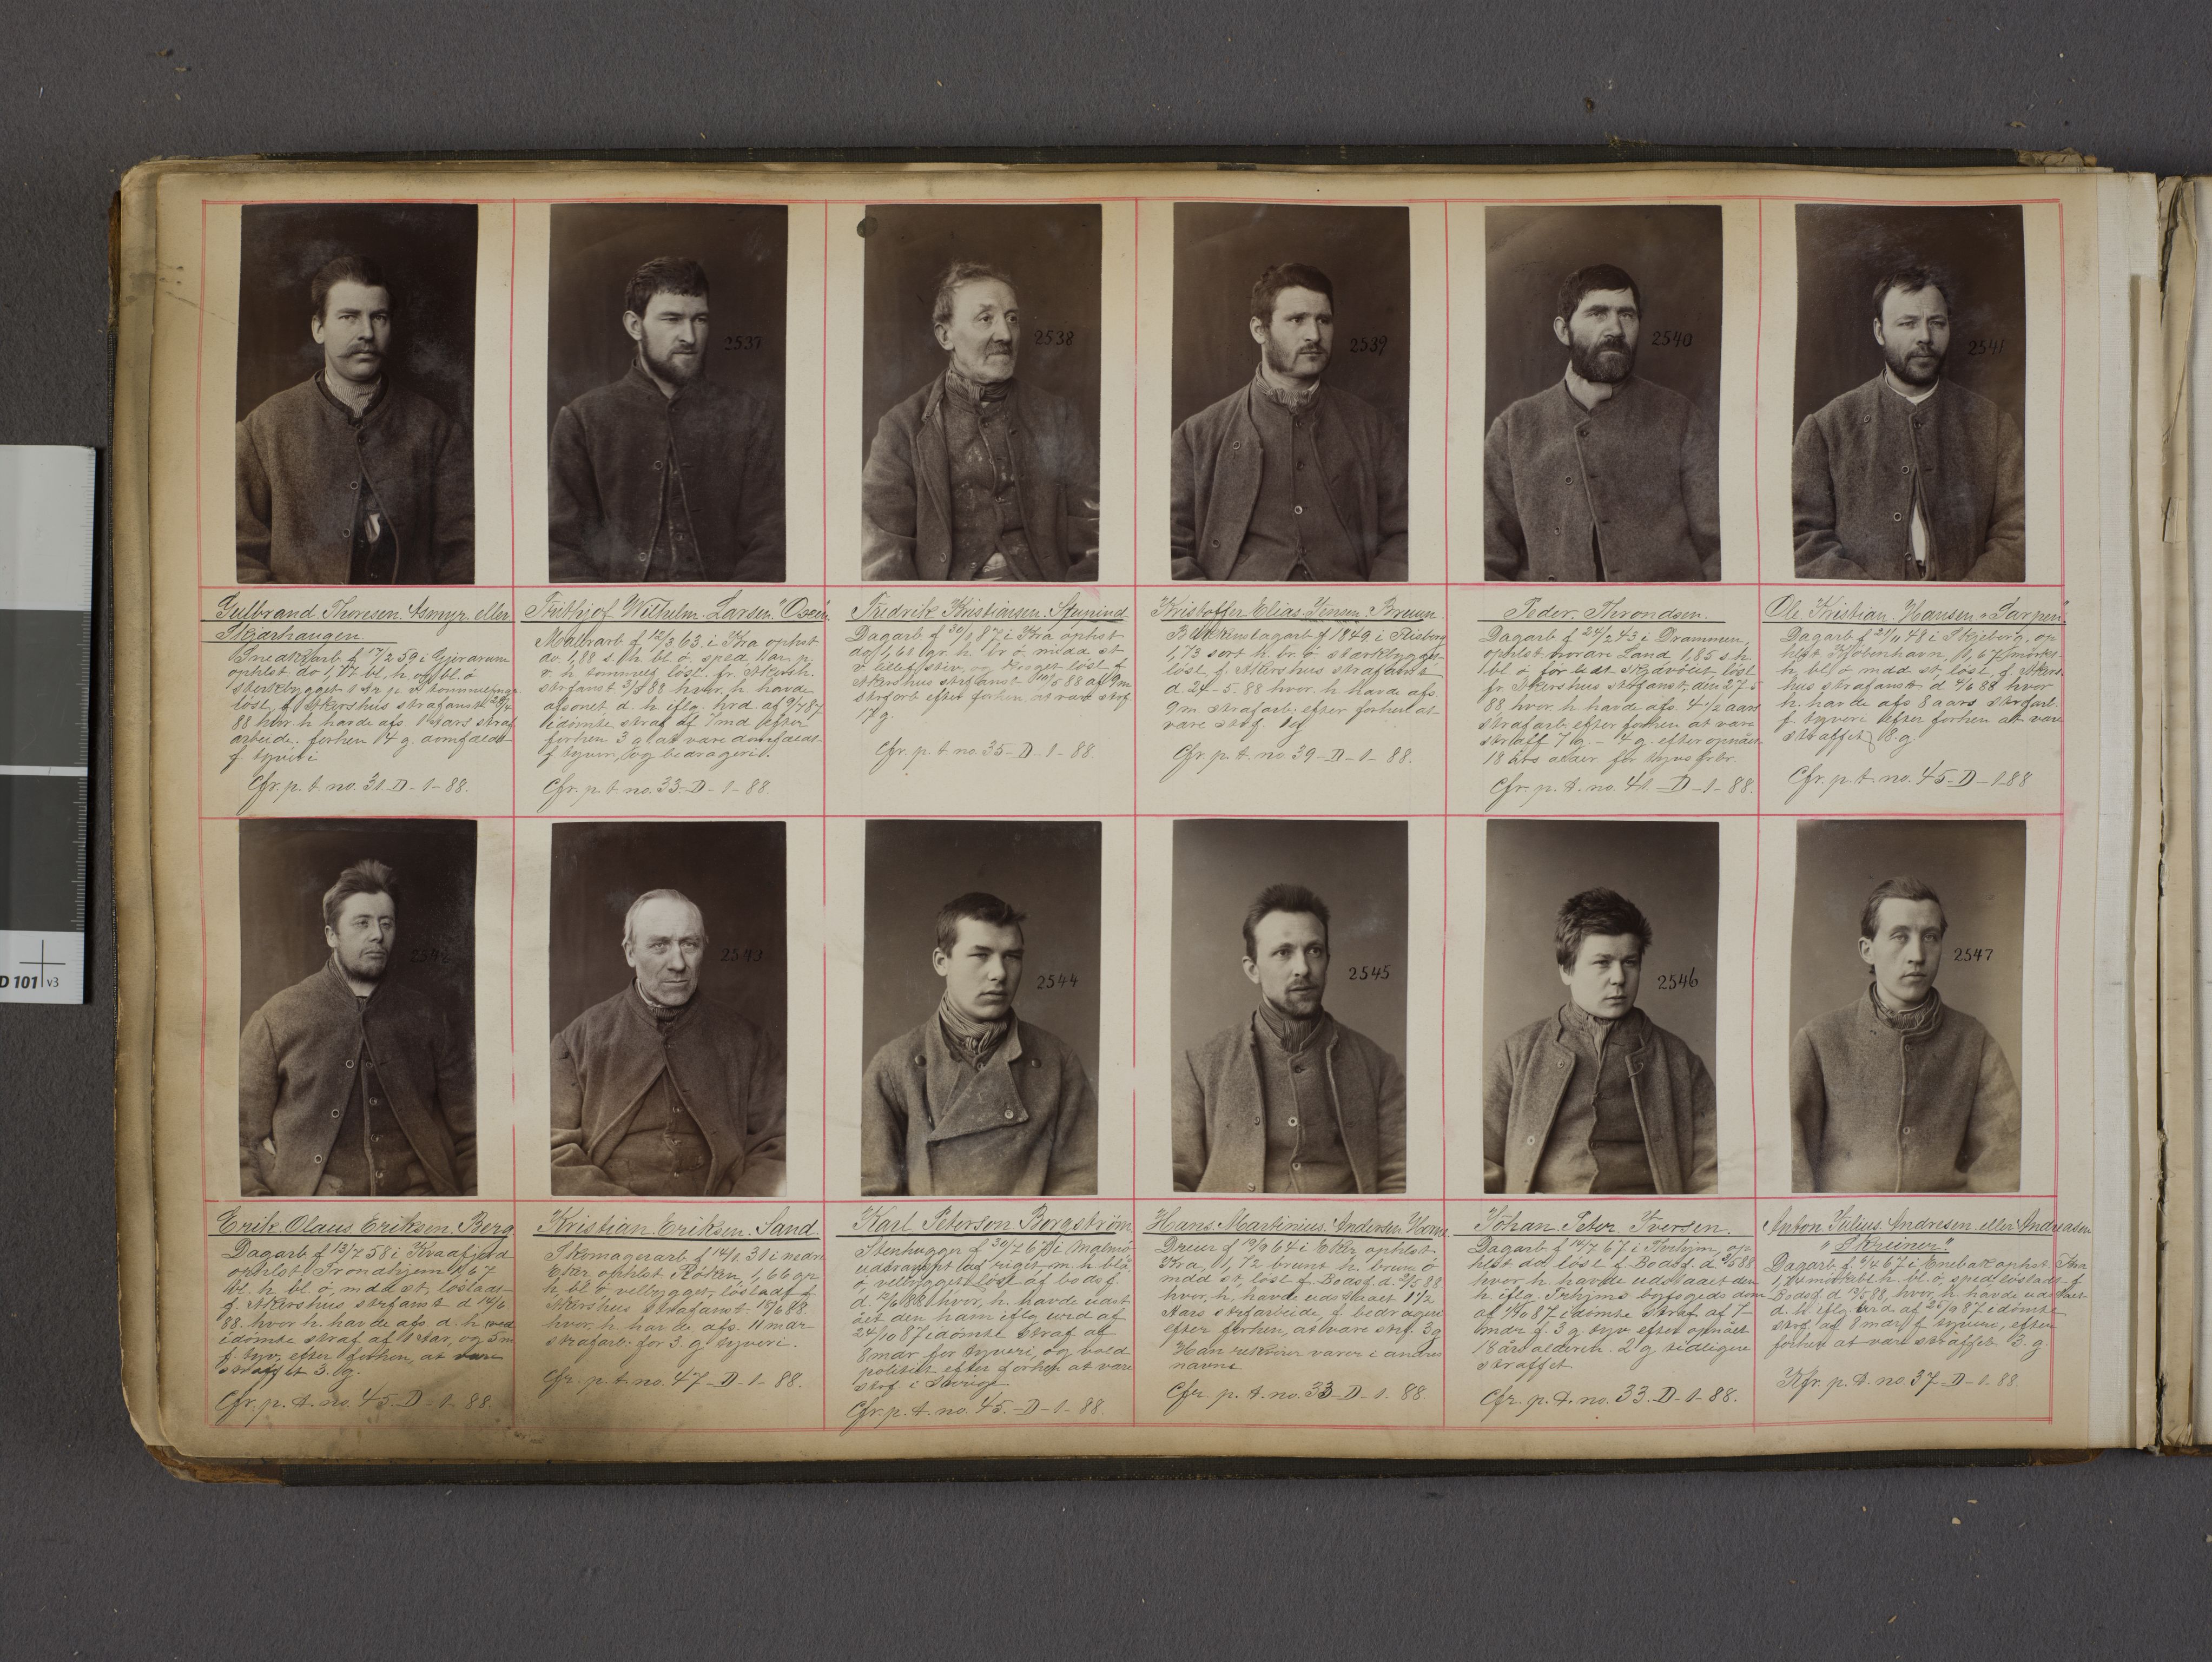 2537
2538
2539
2540
2541
Gulbrand Thoresen Asmyr eller
Skjærhaugen.
Snedkerarb f 17/2 59 i Gjerdrum
ophlst do 1,77 bl, h, og bl. ö
stærkbygget 1 ar p v tommelfinge
löst f Akershus strafanst
88 hvor h havde afs 1 Aars straf
arbeide. forhen 4 g. domfældt
f tyveri
Cfr. p. t. no. 31-D-1-88.
Frithjof Wilhelm Larsen "Oscar"
Malerarb f 12/3 63 i Kra ophlst
do. 1,88 s. h bl ö. sped, 1 ar p.
v. h tommelf löst. fr. Akersh.
strfanst 3/5 88 hvor h havde
afsonet d. h iflg. hrd af 9/7 87
idömte straf af 7 md efter
forhen 3 g at være domfældt
f tyveri, og bedrageri.
Cfr. p. t. no. 33-D-1-88.
Fredrik Kristiansen Stepind
Dagarb f i Kra ophlst
do 1,61 gr. h br ö midd st
v lillef stiv, og kroget löst f
Akershus strfanst 88 af 9m
strfarb efter forhen at være strf
17 g.
Cfr. p. t. no. 35-D-1-88.
Kristoffer Elias Jensen Bruun
f 1849 i
1,73 sort h. br. ö stærkbygget
löst, f. Akershus strafanst
d 24-5. 88 hvor h havde afs.
9 m. strafarb. efter forhen at
være strf. 1 g
Cfr. p. t. no. 39-D-1-88.
Peder Throndsen.
Dagarb f 24/2 43 i Drammen,
ophlst nordre Land 1,85 s h.
bl ö før lidt skjdvöiet, löst
fr Akershus strfanst, den 27-5
88 hvor h havde afs. 4 1/2 aars
strafarb efter forhen at være
straff 7 g. - 4 g. efter opnået
18 års alder for tyvs frbr.
Cfr. p. t. no. 41-D-1-88.
Ole Kristian Hansen "Sarpen"
Dagarb f 21/11 48 i Skjeberg, op
hlst Kjöbenhavn 1,67 mörkt
h bl ö mdd st, löst, f. Akers
hus strafanst. d 4/6 88 hvor
h. havde afs 8 aars strafarb.
f tyveri efter forhen at være
straffet 8. g.
Cfr. p. t. no. 45-D-1-88
2542
2543
2544
2545
2546
2547
Erik Olaus Eriksen Berg
Dagarb f 13/7 58 i
ophlst Trondhjem 1,67
bl. h bl. ö, mdd st, löslads
f. Akershus strfanst d 14/6
88. hvor h. havde afs d. h ved
idömte straf af 1 Aar, og 5m
f tyv, efter forhen, at være
straffet 3. g.
Cfr. p. t. no. 45-D-1-88.
Kristian Eriksen Sand.
Skomagerarb f 14/1 31 i nedre
Eker ophlst Röken, 1,66 gr
h bl ö velbygget, lösladt f
Akershus strafanst 18/6 88.
hvor h. havde afs. 11 mdr
strafarb. for 3. g tyveri.
Cfr. p. t. no. 47-D-1-88.
Karl Peterson Borgström
Stenhugger f 30/7 67 i Malmö
udstransport af riget, m. h blå
ö, velbygget löst af bodsf.
d. 12/6 88 hvor, h. havde udst
ået den ham iflg urd af
24/10 87 idömte Straf af
8 mdr for tyveri, og vold
politiet efter forhen at være
strf i Sverige
Cfr. p. t. no. 45.-D-1-88.
Hans Martinius Andersen
Dreier f 19/9 64 i Eker ophlst
Kra, 1,72 brunt h. brune ö
mdd st, löst f Bodsf. d. 2/5 88
hvor, h, havde udstaaet 1 1/2
Aars strfarbeide, f bedrageri
efter forhen, at være strf. 3 g
Han rekvirer varer i andres
navne.
Cfr. p. t. no. 33-D-1-88.
Johan Peter Iversen.
Dagarb f 14/7 67 i Thrhjm, op
hlst do, löst f Bodsf. d 2/5 88
hvor h havde udstaaet den
h iflg. Trhjms byfogeds dom
af 87 idömte Straf af 7
mdr f. 3 g tyv efter opnået
18 års alderen. 2 g tidligere
straffet
Cfr. p. t. no. 33-D-1-88.
Anton Julius Andresen eller Andreasen
"Skreiner"
Dagarb. f. 9/4 67 i Enebak ophst. Kra
1,74 mörkebl h. bl. ö, sped löslads f
Bodsf d 88, hvor, h havde udstaaet
d. h. iflg. brd af 25/9 87 idömte
strf af 8 mdr f tyveri, efter
forhen at være straffet. 3. g
Kfr. p. t. no. 37-D-1-88.
D 101 v3